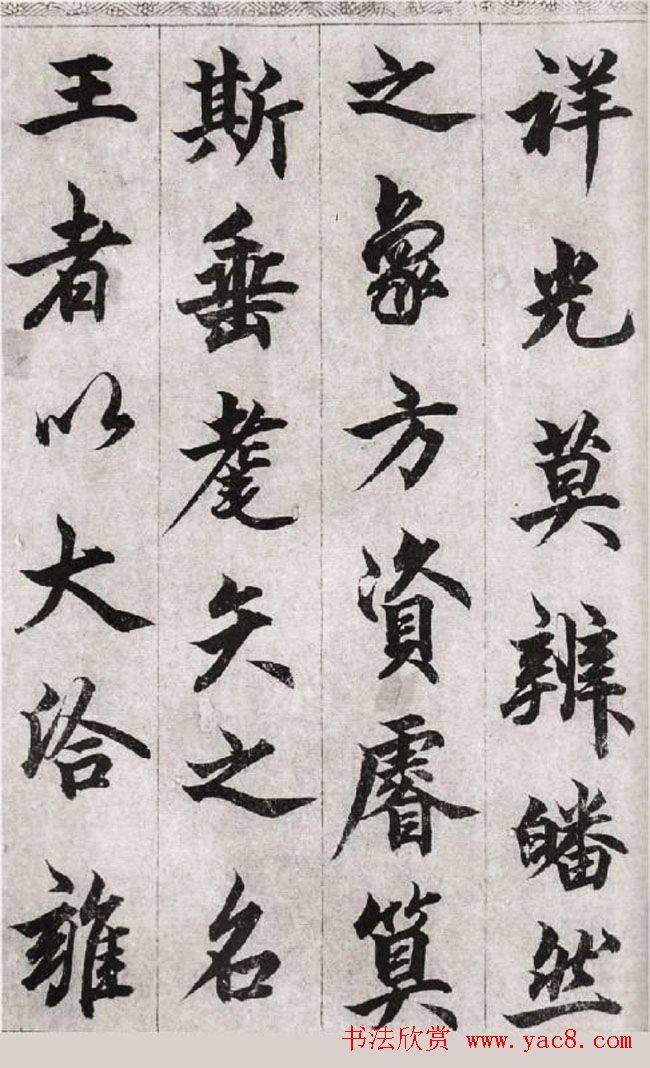 祥光莫辨皤然
之象方資睿算
斯垂耄矢之名
王者以大洽雍
书法欣赏 www.yac8.com